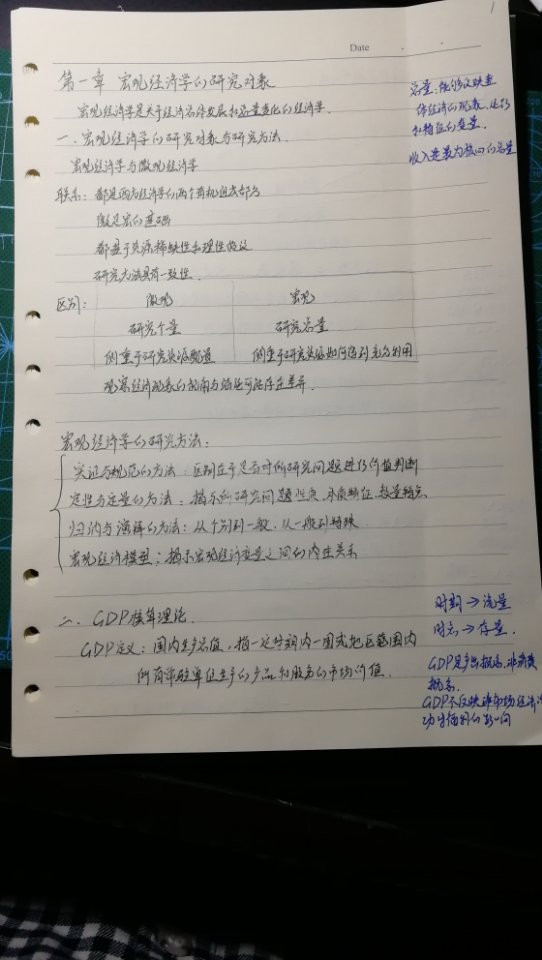 1
Date
第一章 宏观经济学的研究对象
宏观经济学是关于经济总体发展和总量变化的经济学.
一.宏观经济学的研究对象与研究方法.
宏观经济学与微观经济学
联系: 都是西方经济学的两个有机组成部分
微是宏的基础
都基于资源稀缺性和理性假设
研究方法具有一致性.
区别: 微观 宏观
研究个量 研究总量
侧重于研究资源配置 侧重于研究资源如何得到充分利用
观察经济现象的视角与结论可能存在差异.
宏观经济学的研究方法:
实证与规范的方法: 区别在于是否对所研究问题进行价值判断
定性与定量的方法: 揭示所研究问题性质、本质特征、数量特点
归纳与演绎的方法: 从个别到一般, 从一般到特殊
宏观经济模型: 揭示宏观经济变量之间的内在关系
二. GDP核算理论.
GDP定义: 国内生产总值, 指一定时期内一国或地区范围内
所有常驻单位生产的产品和服务的市场价值.
总量: 能够反映整
体经济的现象、运行
和特征的变量.
收入是最为核心的总量
时期→流量
时点→存量.
GDP是产出概念, 非消费
概念.
GDP不反映非市场经济活